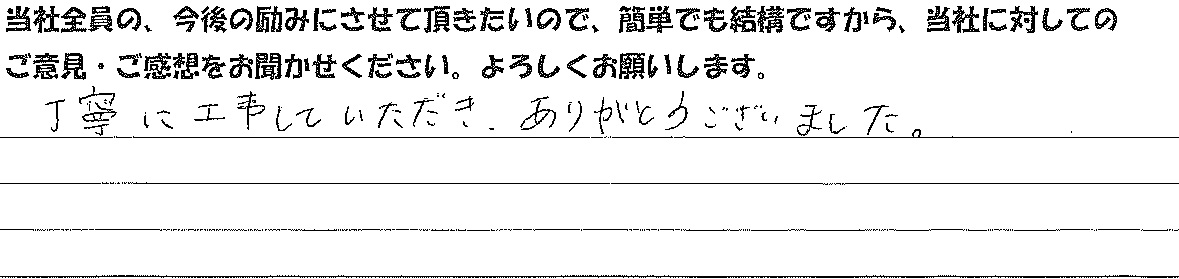 当社全員の、今後の励みにさせて頂きたいので、簡単でも結構ですから、当社に対しての
ご意見・ご感想をお聞かせください。よろしくお願いします。
丁寧に工事していただき、ありがとうございました。